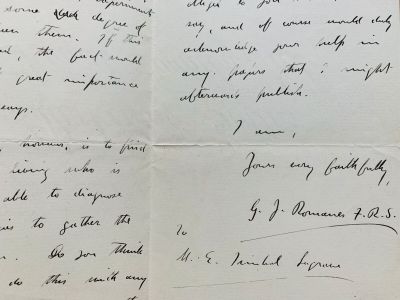 experiment
some degree of
them. If this
the fact would
great importance
ways.
however, is to find
living who is
able to diagnose
to gather the
Do you think
do this with any
to you
say, and of course would duly
acknowledge your help in
any papers that I might
afterwards publish.
I am,
Yours very faithfully,
G. J. Romanes F.R.S.
To
M. E.